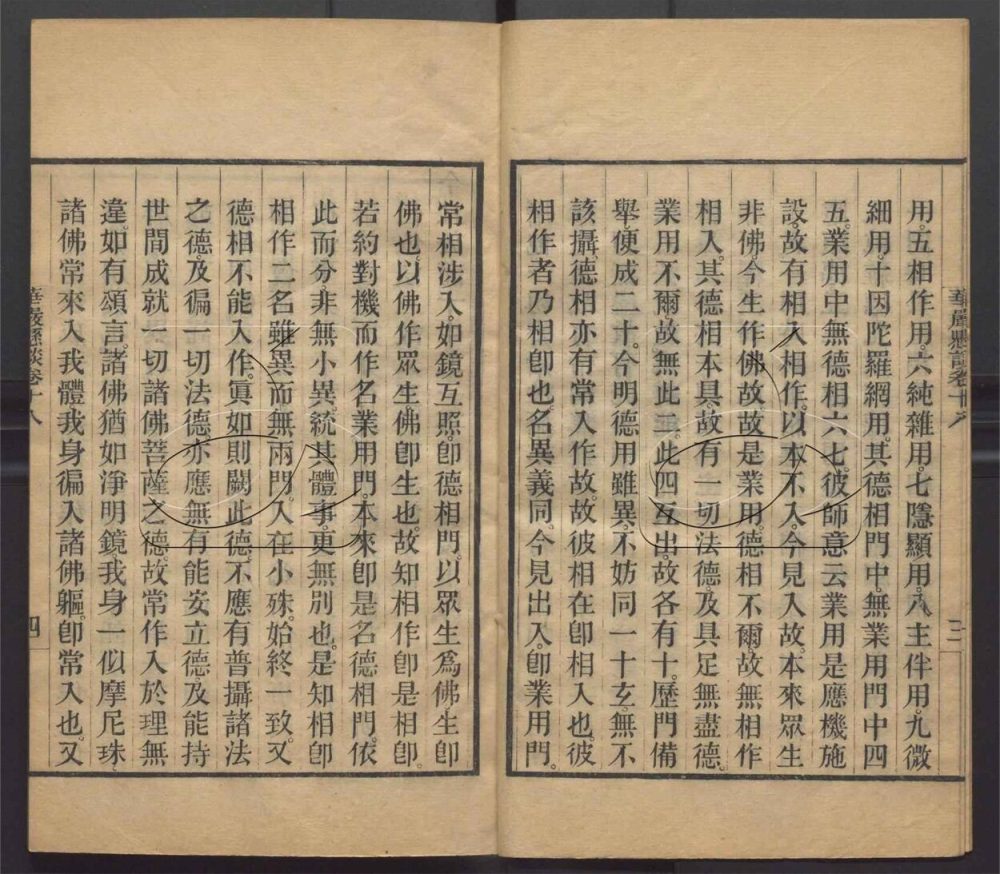 用。五相作用。六純雜用。七隱顯用。八主伴用。九微
細用。十因陀羅網用。其德相門中。無業用門中四
五。業用中無德相六七。彼師意云業用是應機施
設。故有相入相作。以本不入。今見入故。本來眾生
非佛。今生作佛故。故是業用。德相不爾。故無相作
相入。其德相本具。故有一切法德。及具足無盡德。
業用不爾。故無此二。此四互出。故各有十。歷門備
舉。便成二十。今明德用雖異。不妨同一十玄。無不
該攝。德相亦有常入作故。故彼相在。卽相入也。彼
相作者。乃相卽也。名異義同。今見出入。卽業用門。
華嚴懸談卷十八
三
常相涉入。如鏡互照。卽德相門。以眾生爲佛。生卽
佛也。以佛作眾生。佛卽生也。故知相作。卽是相卽。
若約對機而作。名業用門。本來卽是。名德相門。依
此而分。非無小異。統其體事。更無別也。是知相卽
相作。二名雖異。而無兩門。入在小殊。始終一致。又
德相不能入作。眞如則闕此德。不應有普攝諸法
之德。及徧一切法德。亦應無有能安立德。及能持
世間成就一切諸佛菩薩之德。故常作入。於理無
違。如有頌言。諸佛猶如淨明鏡。我身一似摩尼珠。
諸佛常來入我體。我身徧入諸佛軀。卽常入也。又
華嚴懸談卷十八
四